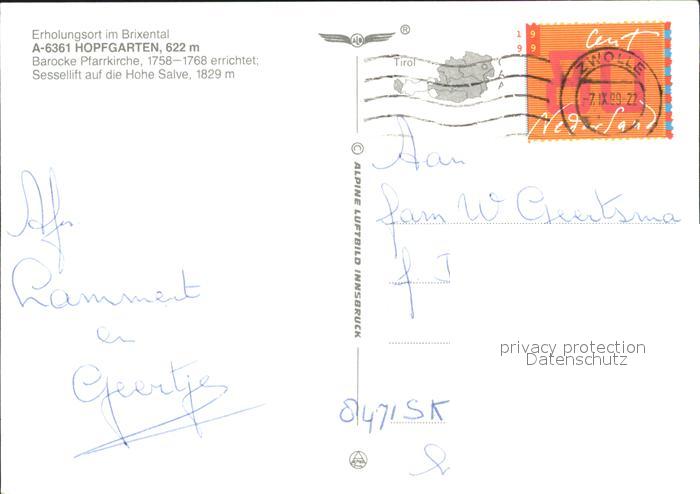 Erholungsort im Brixental
A-6361 HOPFGARTEN, 622 m
Barocke Pfarrkirche, 1758—1768 errichtet;
Sessellift auf die Hohe Salve, 1829 m
®
Tirol
© ALPINE LUFTBILD INNSBRUCK
1999
cent
80
Nederland
ZWOLLE
Afz
Lammert
en
Geertje
Aan
fam W Geertsma
8471SK
privacy protection
Datenschutz